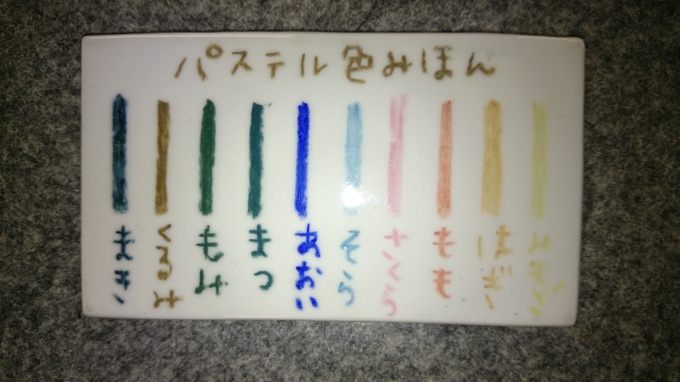 パステル色みほん
まき
くるみ
もみ
まつ
あおい
そら
さくら
もも
みもざ